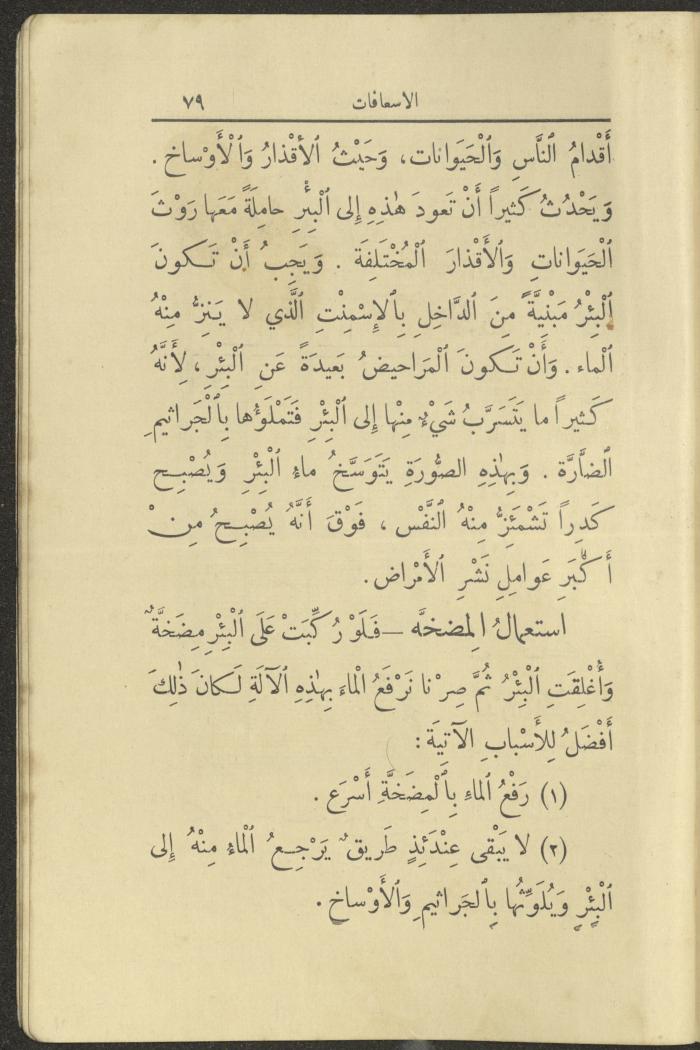 الاسعافات ٧٩
أَقْدامُ ٱلنَّاسِ وَٱلْحَيَوانات، وَحَيْثُ ٱلأقْذارُ وَٱلْأَوْساخ.
وَيَحْدُثُ كَثيراً أَنْ تَعودَ هٰذِهِ إِلى ٱلْبِئْرِ حامِلَةً مَعَها رَوْثَ
ٱلْحَيَواناتِ وَٱلأَقْذارَ ٱلْمُخْتَلِفَة. وَيَجِبُ أَنْ تَكونَ
ٱلْبِئْرُ مَبْنِيَّةً مِنَ ٱلدَّاخِلِ بِٱلإِسْمِنْتِ ٱلَّذي لا يَنِزُّ مِنْهُ
ٱلْماء. وَأَنْ تَكونَ ٱلْمَراحيضُ بَعيدَةً عَنِ ٱلْبِئْرِ، لِأَنَّهُ
كَثيراً ما يَتَسَرَّبُ شَيْءٌ مِنْها إِلى ٱلْبِئْرِ فَتَمْلَؤُها بِٱلْجَراثيمِ
ٱلضَّارَّة. وَبِهٰذِهِ الصُّورَةِ يَتَوَسَّخُ ماءُ ٱلْبِئْرِ وَيُصْبِح
كَدِراً تَشْمَئِزُّ مِنْهُ ٱلنَّفْس، فَوْقَ أَنَّهُ يُصْبِحُ مِنْ
أَكْبَرِ عَوامِلِ نَشْرِ ٱلأَمْراض.
استعمالُ المِضخَّه – فَلَوْ رُكِّبَتْ عَلَى ٱلْبِئْرِ مِضَخَّةٌ
وَأُغْلِقَتِ ٱلْبِئْرُ ثُمَّ صِرْنا نَرْفَعُ ٱلْماءَ بِهٰذِهِ ٱلآلَةِ لَكانَ ذٰلِكَ
أَفْضَلُ لِلأَسْبابِ ٱلآتِيَة:
(١) رَفْعُ ٱلماءِ بِٱلْمِضَخَّةِ أَسْرَع.
(٢) لا يَبْقى عِنْدَئِذٍ طَريقٌ يَرْجِعُ ٱلْماءُ مِنْهُ إِلى
ٱلْبِئْرِ وَيُلَوِّثُها بِٱلجَراثيمِ وَٱلأَوْساخ.